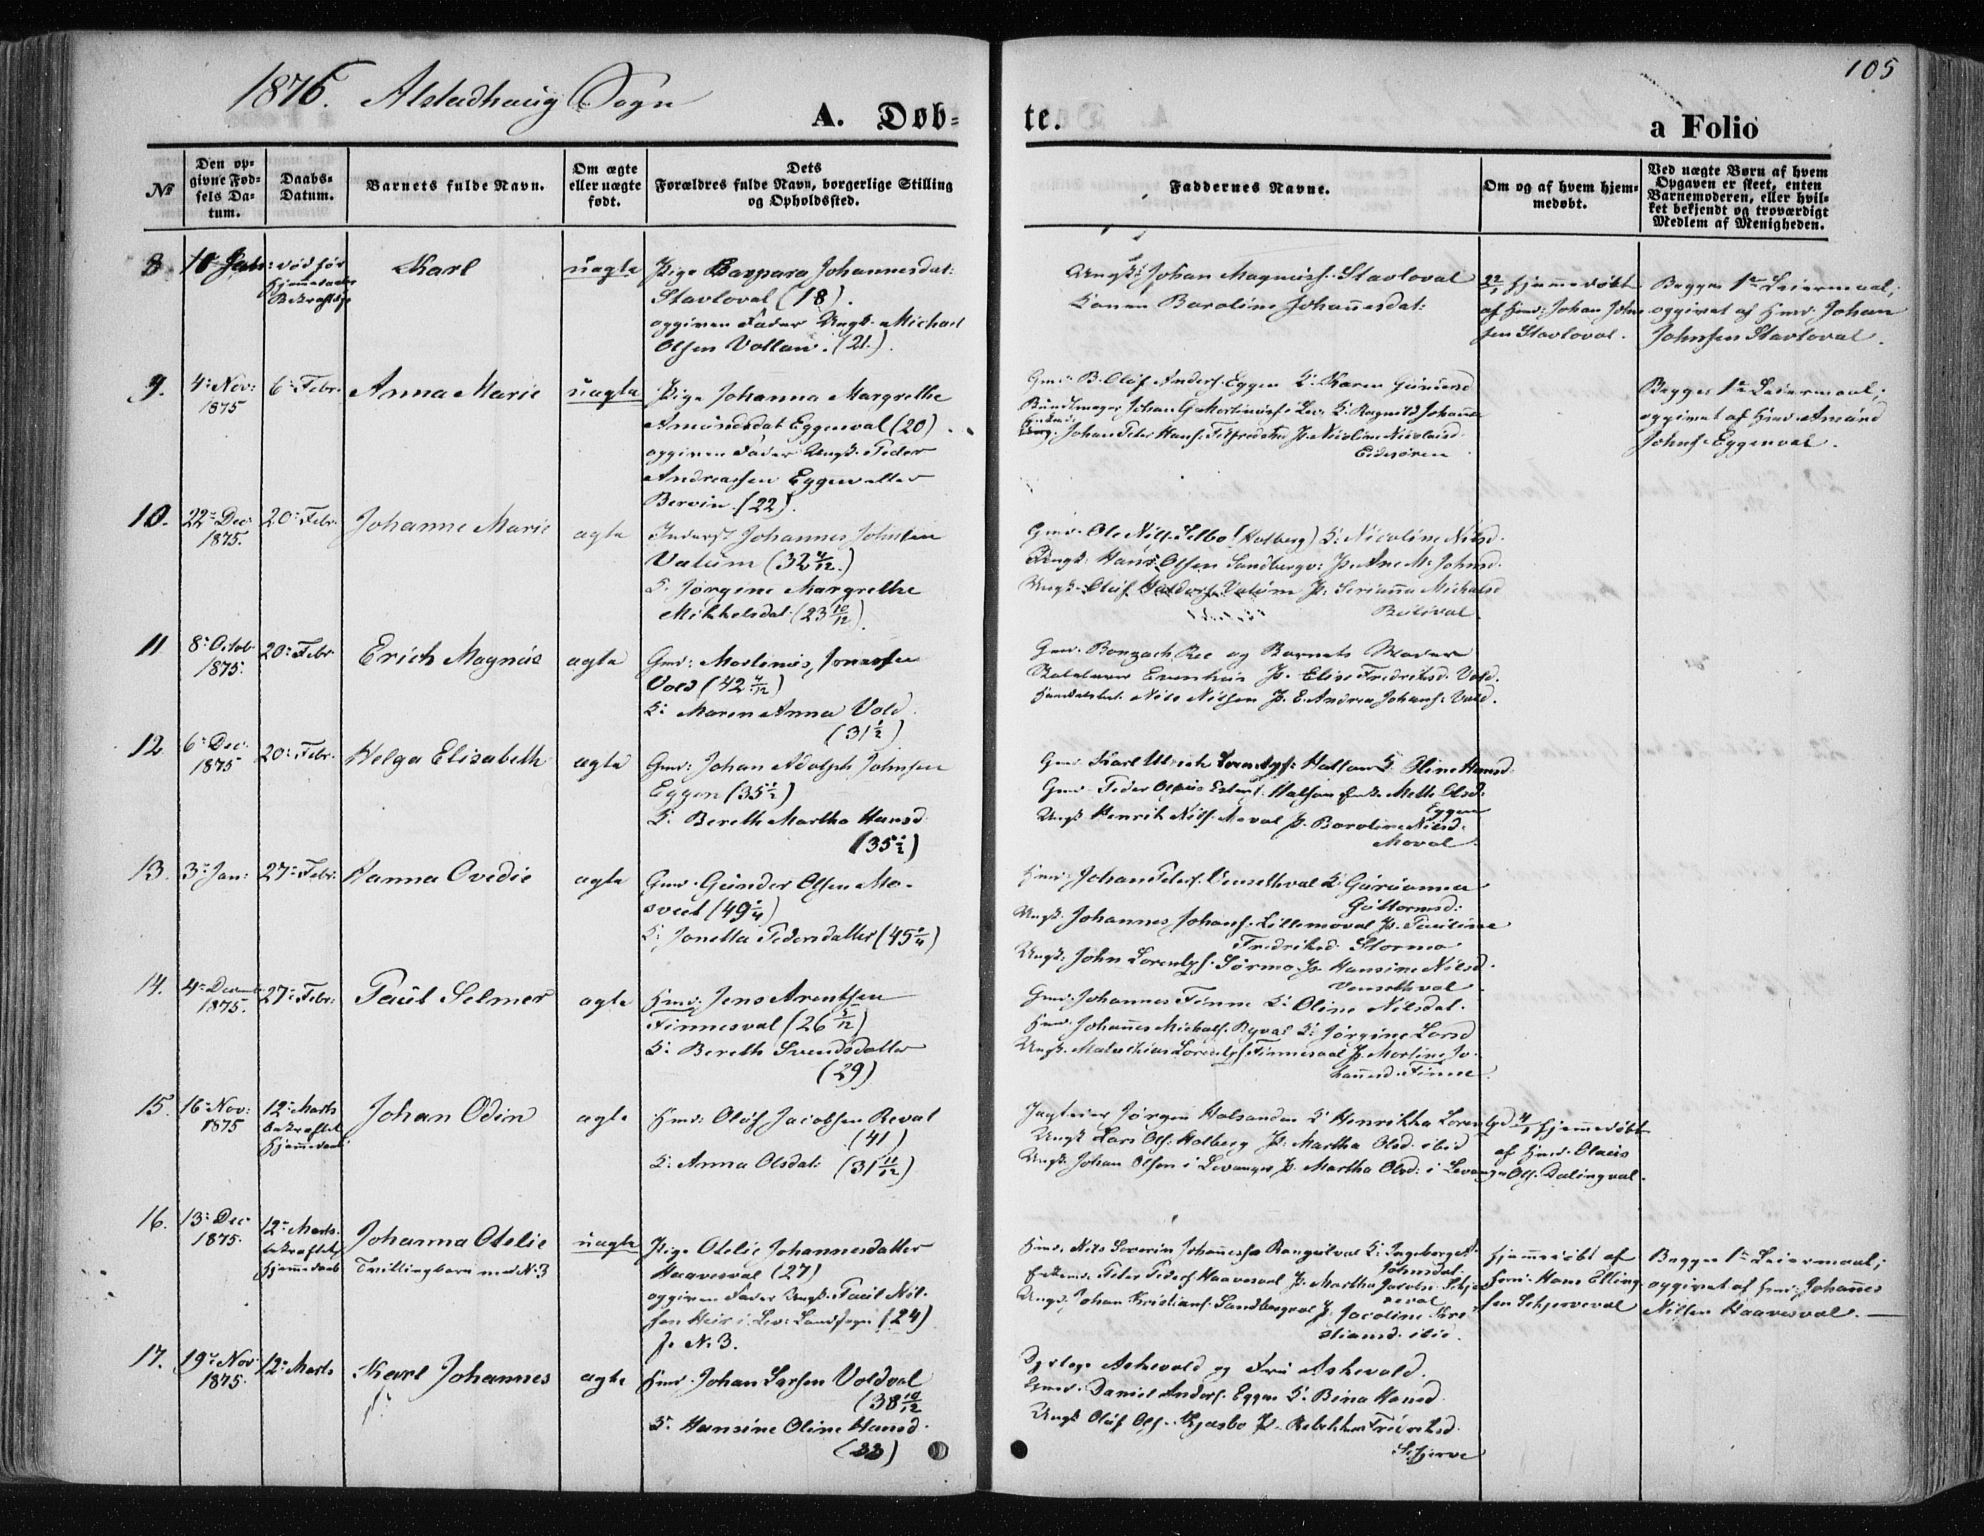 105
1876. Alstadhaug Sogn
A. Døb-
te.
a Folio
No
Den op-
givne Fød-
sels Da-
tum.
Daabs-
Datum.
Barnets fulde Navn.
Om ægte
eller uægte
født.
Dets
Forældres fulde Navn, borgerlige Stilling
og Opholdssted.
Faddernes Navne.
Om og af hvem hjem-
medøbt.
Ved uægte Børn af hvem
Opgaven er skeet, enten
Barnemoderen, eller hvil-
ket bekjendt og troværdigt
Medlem af Menigheden.
8
Jan:
død før
Hjemmedaaben
Bekræftelse
Karl
uægte
Pige Barpara Johannesdat:
Stavloval (18).
opgiven Fader Ungk. Michael
Olsen Vollan. (21.).
Ungk: Johan Magnus. Stavloval
Konen Baroline Johannesdat:
22/1 hjemmedøbt
af Hmd: Johan John
sen Stavloval.
Begges 1ste Leiermaal;
opgivet af Hmd. Johan
Johnsen Stavloval.
9.
4: Nov:
1875
6: Febr.
Anna Marie
uægte
Pige Johanna Margrethe
Amundsdat Eggenval (20).
opgiven Fader Ungk. Peder
Andreassen Eggen eller
Bervin. (22).
Gmd. B. Oluf Anders. Eggen K. Karen Gundersd
Bundtmager Johan G. Martinuss. Lev. K. Ragnild Johanna
Johan Peter Hans. P. Nicoline Nicolaisd.
Eidsøren
Begges 1ste Leiermaal;
opgivet af Hmd. Amund
Johns. Eggenval.
10.
22: Dec.
1875.
20: Febr.
Johanne Marie
ægte
Inderst Johannes Johnsen
Valum (32 4/12.)
K. Jørgine Margrethe
Mikkelsdat. (23 10/12).
Gmd. Ole Nils. Selbo (Holberg) K. Nicoline Nilsd.
Ungk. Hans Olsen Sandbergv: P. Ane M. Johnsd.
Ungk. Oluf Valum P. Serianna Michaelsd
11
8: Octob
1875.
20: Febr
Erich Magnus
ægte
Gmd: Martinus Jonassen
Vold (42 4/12)
K: Maren Anna Vold.
(31 1/2)
Gmd. Bonzach Ree og Barnets Moder
Evenhus P. Elise Fredriksd. Vold.
Handelsbet. Nils Nilsen P. E. Andrea Johans. Vold.
12
6: Dec.
1875
20: Febr.
Helga Elisabeth
ægte
Gmd: Johan Adolph Johnsen
Eggen (35 1/2)
K. Bereth Martha Hansd
(35 1/2)
Gmd Karl Ulrich Lorentzs. Halsan K. Oline Hansd.
Gmd. Peder Halsan Mette Olsd.
Eggen
Ungk Henrik Nils. Moval P. Baroline Nilsd.
Moval.
13.
3: Jan:
27: Febr.
Hanna Ovedie
ægte
Gmd. Gunder Olsen Mo-
sveet (49 1/4)
K: Jonetta Pedersdatter (45 1/4)
Hmd. Johan Peders. Vensethval K. Gurianna
Guttormsd:
Ungk. Johannes Johans. Littemoval P. Pauline
Fredriksd. Stormo
Ungk. John Lorentzs. Sørmo P. Hansine Nilsd.
Vensethval
14.
4: Decemb
1875.
27: Febr.
Paul Selmer
ægte
Hmd: Jens Arentsen
Finnesval (26 5/12)
K: Bereth Svendsdatter
(29)
Gmd. Johannes Finne K. Oline Nilsdat.
Hmd. Johannes Michals. Byval K. Jørgine Larsd
Ungk. Mathias Lorentzs. Finnesval P. Martine Jo-
hannesd. Finne.
15.
16: Nov:
1875
12: Marts
bekræftet
Hjemmedaab
Johan Odin
ægte
Hmd: Oluf Jacobsen Reval
(41)
K. Anna Olsdat: (31 11/12)
Jægteier Jørgen Halsanden K. Henrikka Lorentzd
Ungk Lars Ols. Holberg P. Martha Olsd. ibid
Ungk. Johan Olsen i Levanger P. Martha Olsd. i Levanger
4/1 hjemmedøbt
af Hmd. Olaus
Ols. Dalingval.
16.
13: Dec.
1875.
12: Marts.
bekræftet
Hjemmedaab
Johanna Otelie
Tvillingbarn med N: 3
uægte
Pige Otelie Johannesdatter
Haavesval (27)
opgiven Fader Ungk. Paul Nil-
sen Heir i Lev: Landsogn (24)
fr. N: 3.
Hmd. Nils Severin Johanness. Rangulval K. Ingeborget
Johnsdat.
Enkemd. Peter Peders. Haavesval P. Martha Jacobs.
Ungk. Johan Kristians. Sandbergval P. Jacoline Kri-
stiansd. ibid.
hjemmedøbt af
Hmd. Hans Elling
sen Schjerveval
Begges 1ste Leiermaal;
opgivet af Hmd. Johannes
Nilsen Haavesval. —
17.
19: Nov
1875.
12: Marts
Karl Johannes
ægte
Hmd. Johan Larsen Voldval
(38 10/12
K. Hansine Oline Hansd.
(33)
Dyrlæge Askevold og Fru Askevold.
Gmd. Daniel Anders. Eggen K. Bina Hansd.
Ungk Oluf Ols. Kjesbo P. Rebekka Fredriksd.
Schjerve